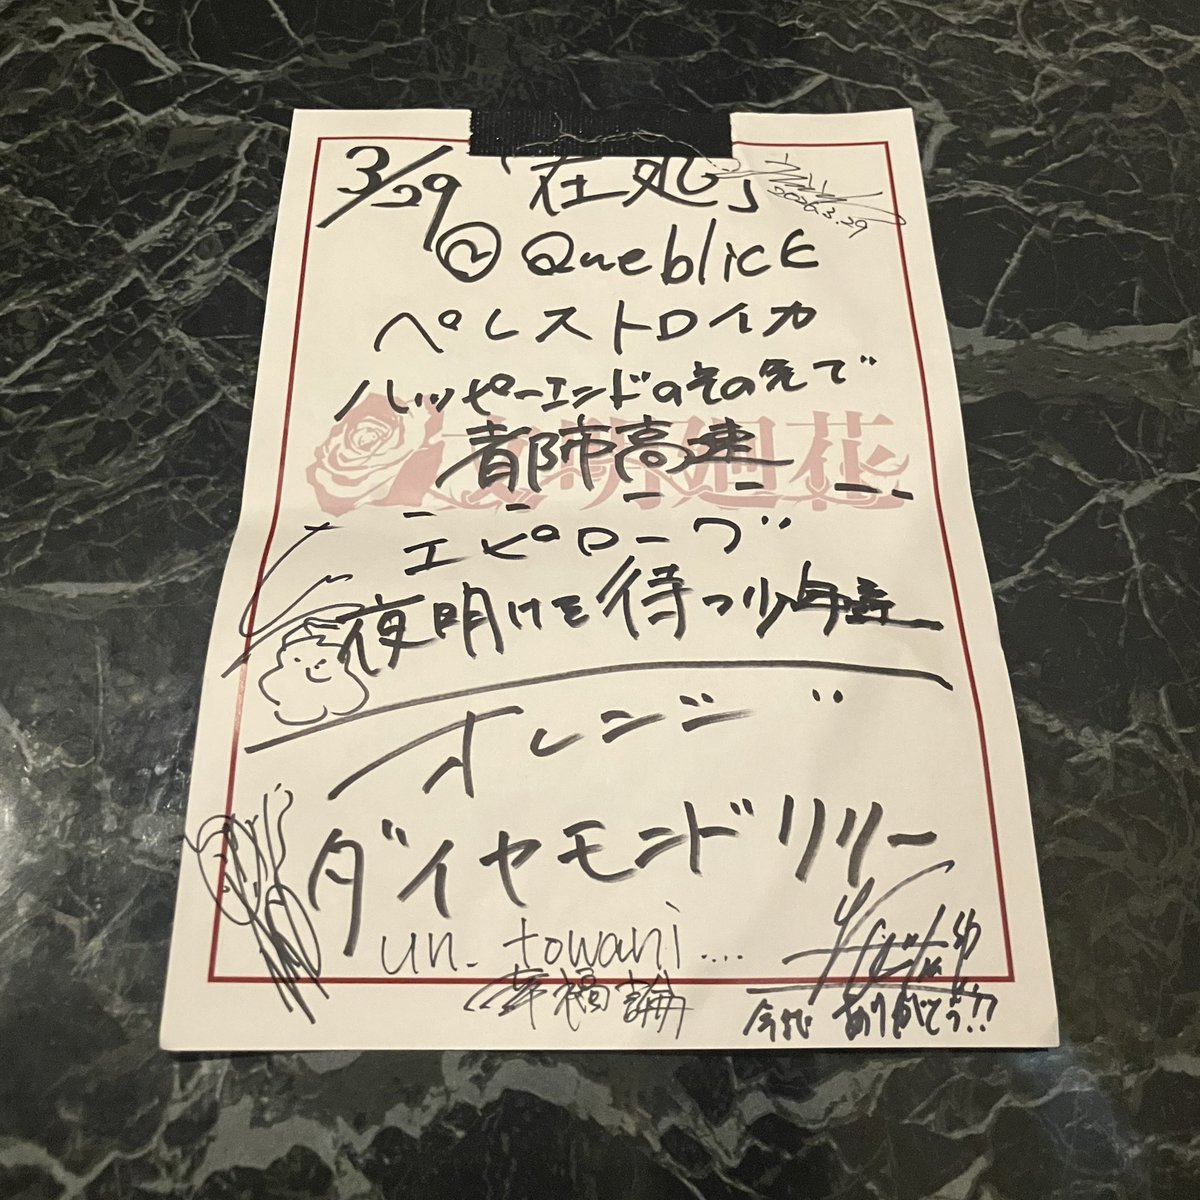 3/29 「在処」
2026.3.29
@ Queblick
ペレストロイカ
ハッピーエンドのその先で
都市高速
エピローグ
夜明けを待つ少年達
オレンジ
ダイヤモンドリリー
un_towani....
幸福論
今まで ありがとう!!